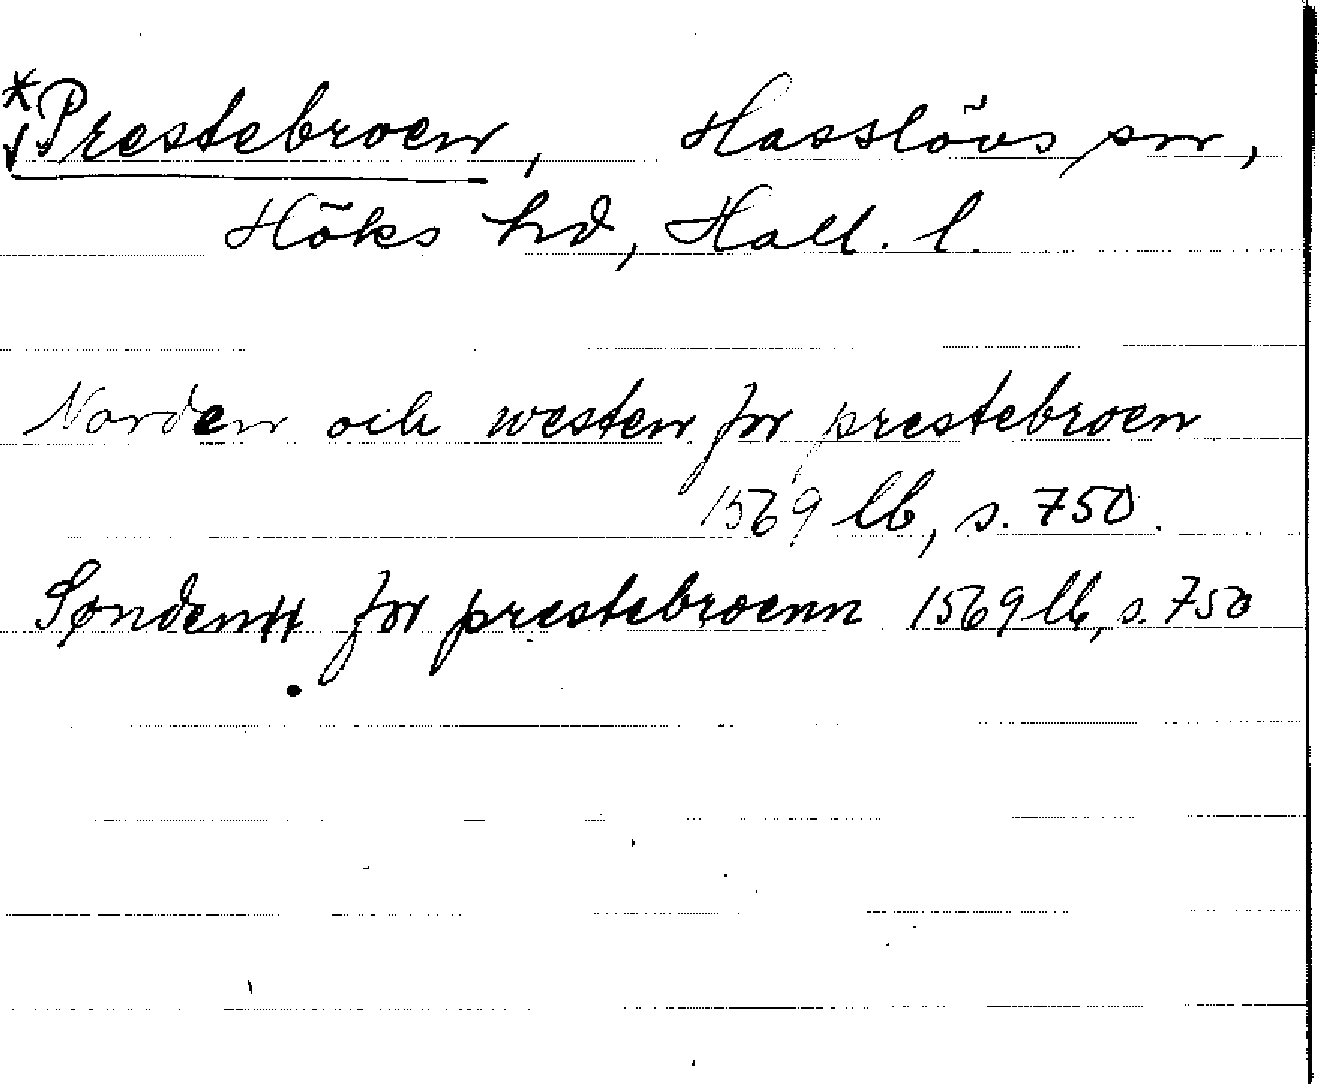 *Prestebroen, Hasslövs sn,
Höks hd, Hall. l.
Norden och westen for prestebroen
1569 lb, s. 750.
Søndenn for prestebroenn 1569 lb, s. 750